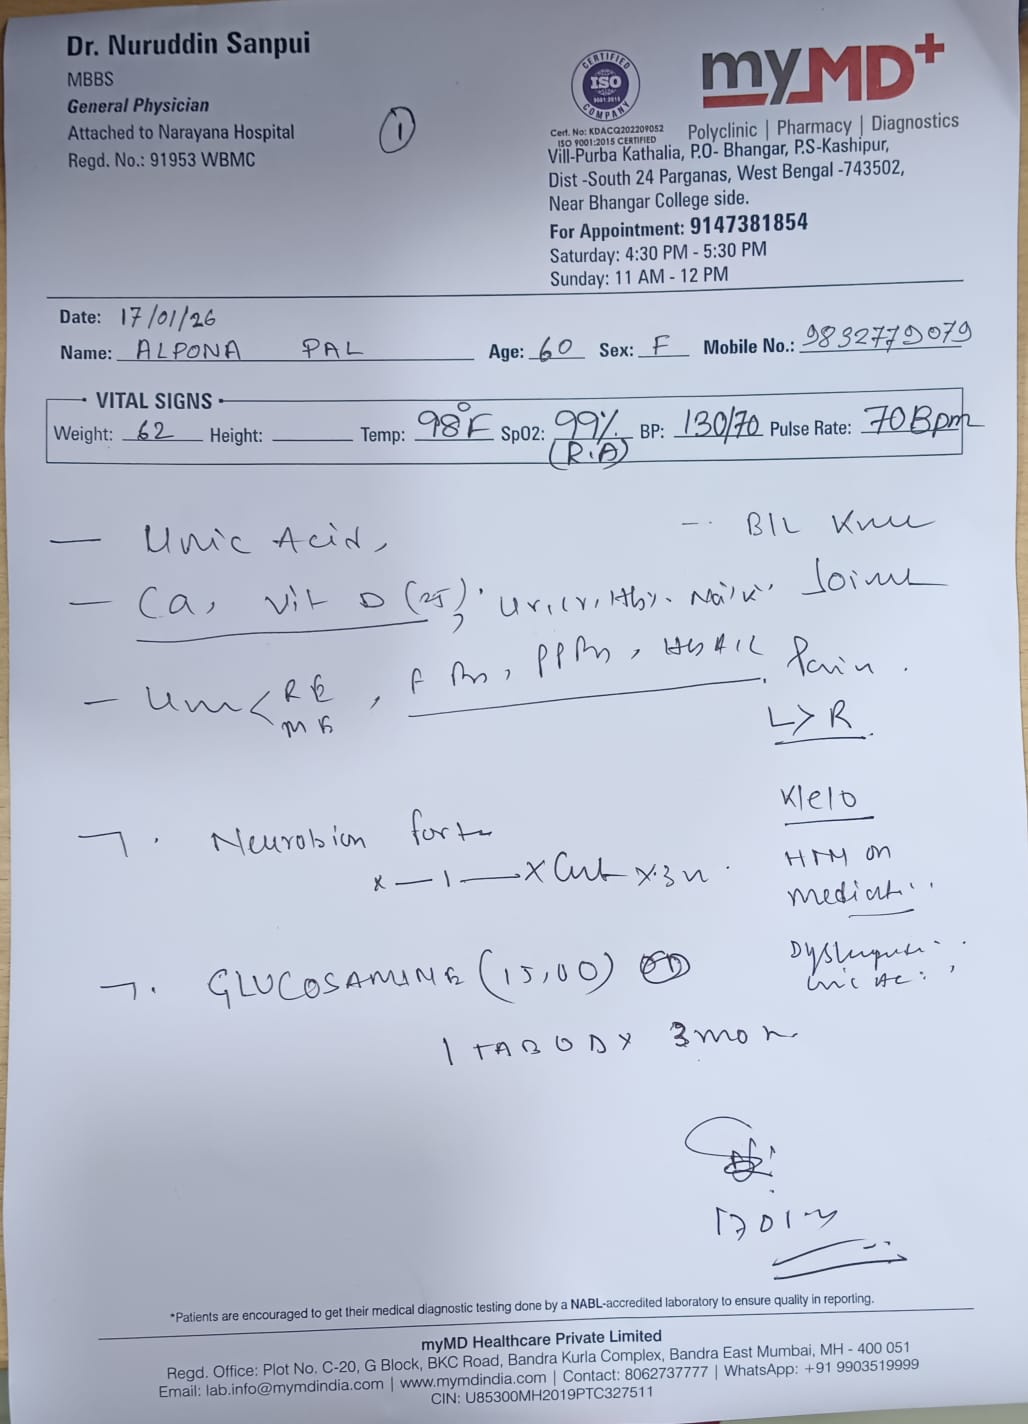 Dr. Nuruddin Sanpui
MBBS
General Physician
Attached to Narayana Hospital
Regd. No.: 91953 WBMC
1
CERTIFIED
ISO
9001:2015
COMPANY
Cert. No: KDACQ202209052
ISO 9001:2015 CERTIFIED
myMD+
Polyclinic | Pharmacy | Diagnostics
Vill-Purba Kathalia, P.O- Bhangar, P.S-Kashipur,
Dist -South 24 Parganas, West Bengal -743502,
Near Bhangar College side.
For Appointment: 9147381854
Saturday: 4:30 PM - 5:30 PM
Sunday: 11 AM - 12 PM
Date: 17/01/26
Name: ALPONA PAL Age: 60 Sex: F Mobile No.: 9832779079
VITAL SIGNS
Weight: 62 Height: Temp: 98°F SpO2: 99% (R.A) BP: 130/70 Pulse Rate: 70 Bpm
— Uric Acid,
— Ca, Vit D (25), Ur, Cr,
— R/E
M/E
B/L Knee
Joint
Pain.
L>R
K/c/o
HTN on
Neurobion forte
x — 1 — x
GLUCOSAMINE (1500)
1 TAB OD x 3 mon
*Patients are encouraged to get their medical diagnostic testing done by a NABL-accredited laboratory to ensure quality in reporting.
myMD Healthcare Private Limited
Regd. Office: Plot No. C-20, G Block, BKC Road, Bandra Kurla Complex, Bandra East Mumbai, MH - 400 051
Email: lab.info@mymdindia.com | www.mymdindia.com | Contact: 8062737777 | WhatsApp: +91 9903519999
CIN: U85300MH2019PTC327511